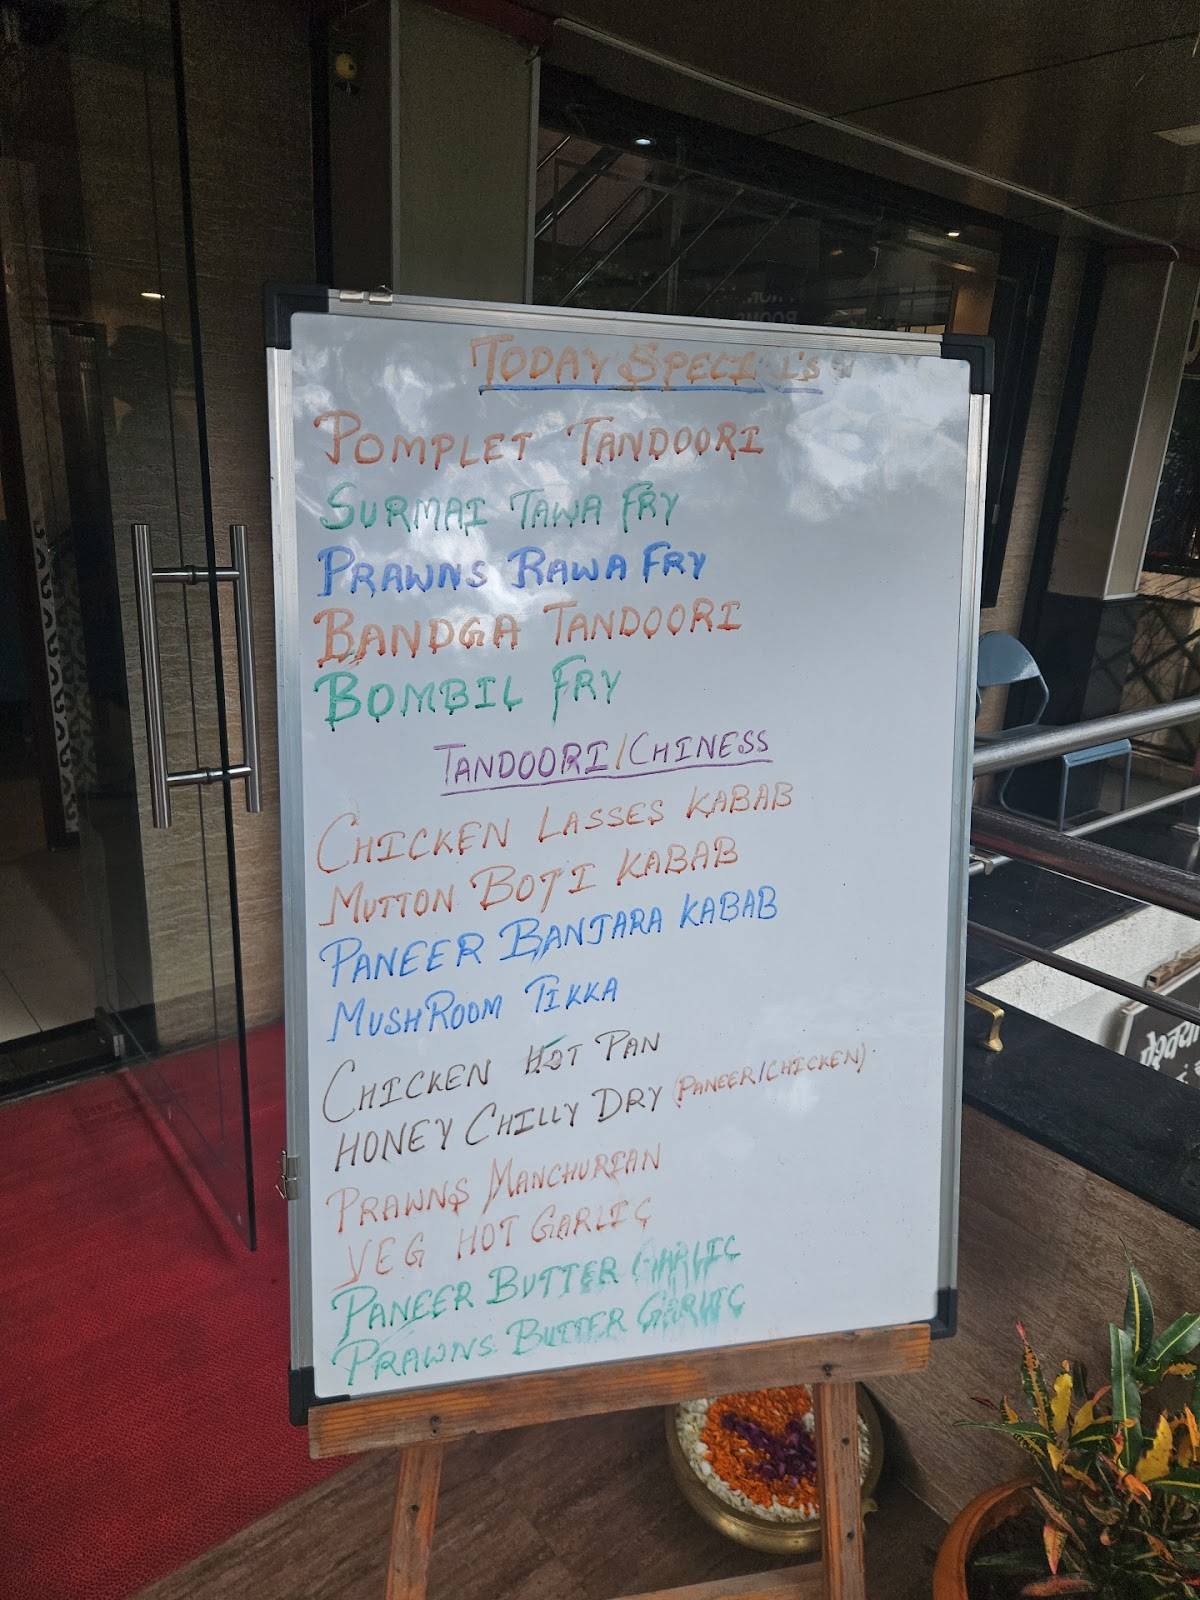 TODAY SPECIAL'S
POMPLET TANDOORI
SURMAI TAWA FRY
PRAWNS RAWA FRY
BANDGA TANDOORI
BOMBIL FRY
TANDOORI/CHINESS
CHICKEN LASSES KABAB
MUTTON BOTI KABAB
PANEER BANJARA KABAB
MUSHROOM TIKKA
CHICKEN HOT PAN
HONEY CHILLY DRY (PANEER/CHICKEN)
PRAWNS MANCHURIAN
VEG HOT GARLIC
PANEER BUTTER GARLIC
PRAWNS BUTTER GARLIC